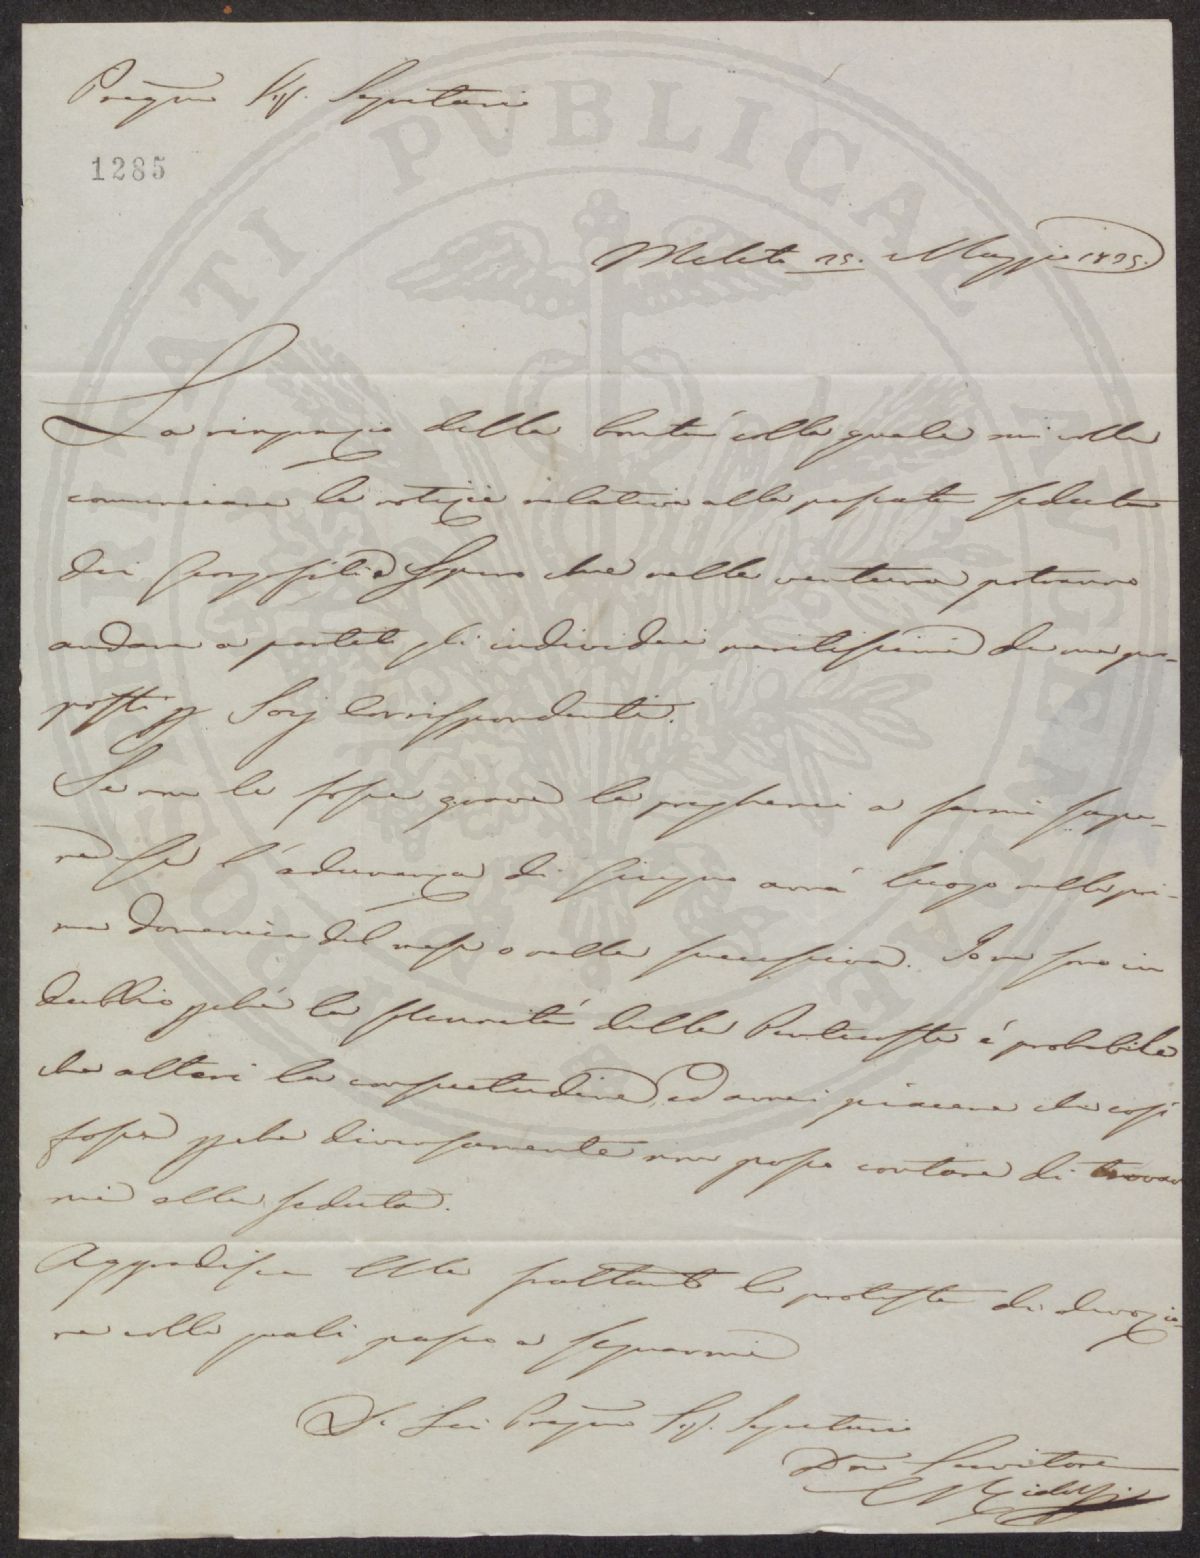 Pregmo Sigr. Segretario
1285
PROSPERITATI PVBLICAE AVGENDAE
Meleto 25. Maggio 1825.
La ringrazio della bontà colla quale mi volle
comunicare le notizie relative alla passata seduta
dei Georgofili e spero che nella ventura potranno
andare a partito gli individui meritissimi da me pro-
posti p Socj Corrispondenti.
Se non le fosse grave la pregherei a farmi sape-
re se l'adunanza di Giugno avrà luogo nella pri-
ma Domenica del mese o nella successiva. Io ne sono in
dubbio pchè la solennità della Pentecoste è probabile
che alteri la consuetudine, ed avrei piacere che così
fosse pchè diversamente non posso contare di trovar
mi alla seduta.
Aggradisca Ella frattanto le proteste di devozio-
ne colle quali passo a segnarmi
Di Lei Pregmo Sigr. Segretario
Dev Servitore
CRidolfi